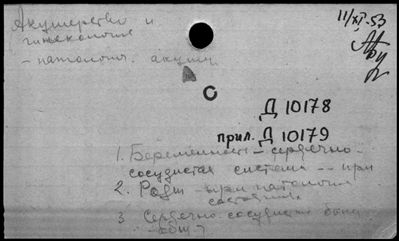 Акушерство и
гинекология
11/XI-53
- патологич. акуш.
Д 10178
прил. Д 10179
1. Беременность - сердечно-
сосудистая система -- при
2. Роды - при патологич
состояниях
3 Сердечно-сосудист